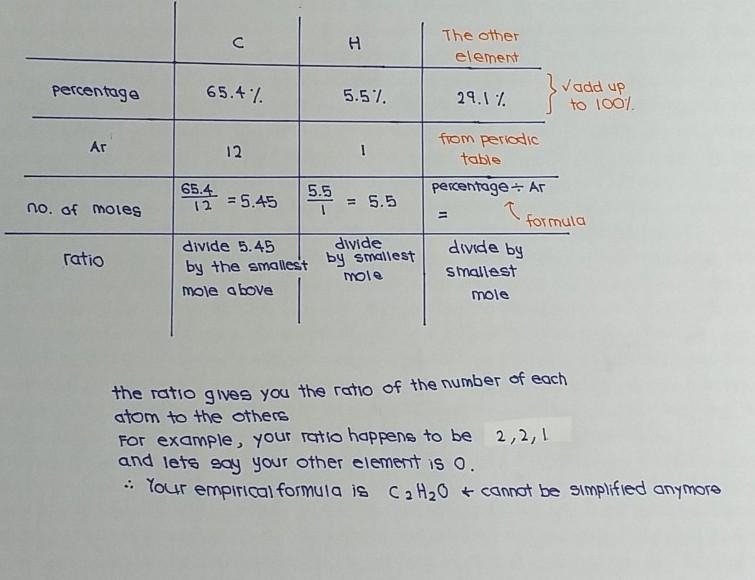 C H The other
element
percentage 65.4% 5.5% 29.1% } √ add up
to 100%
Ar 12 1 from periodic
table
no. of moles 65.4/12 = 5.45 5.5/1 = 5.5 percentage ÷ Ar
= ↑ formula
ratio divide 5.45 divide divide by
by the smallest by smallest smallest
mole above mole mole
the ratio gives you the ratio of the number of each
atom to the others
For example, your ratio happens to be 2,2,1
and lets say your other element is O.
∴ Your empirical formula is C₂H₂O ← cannot be simplified anymore